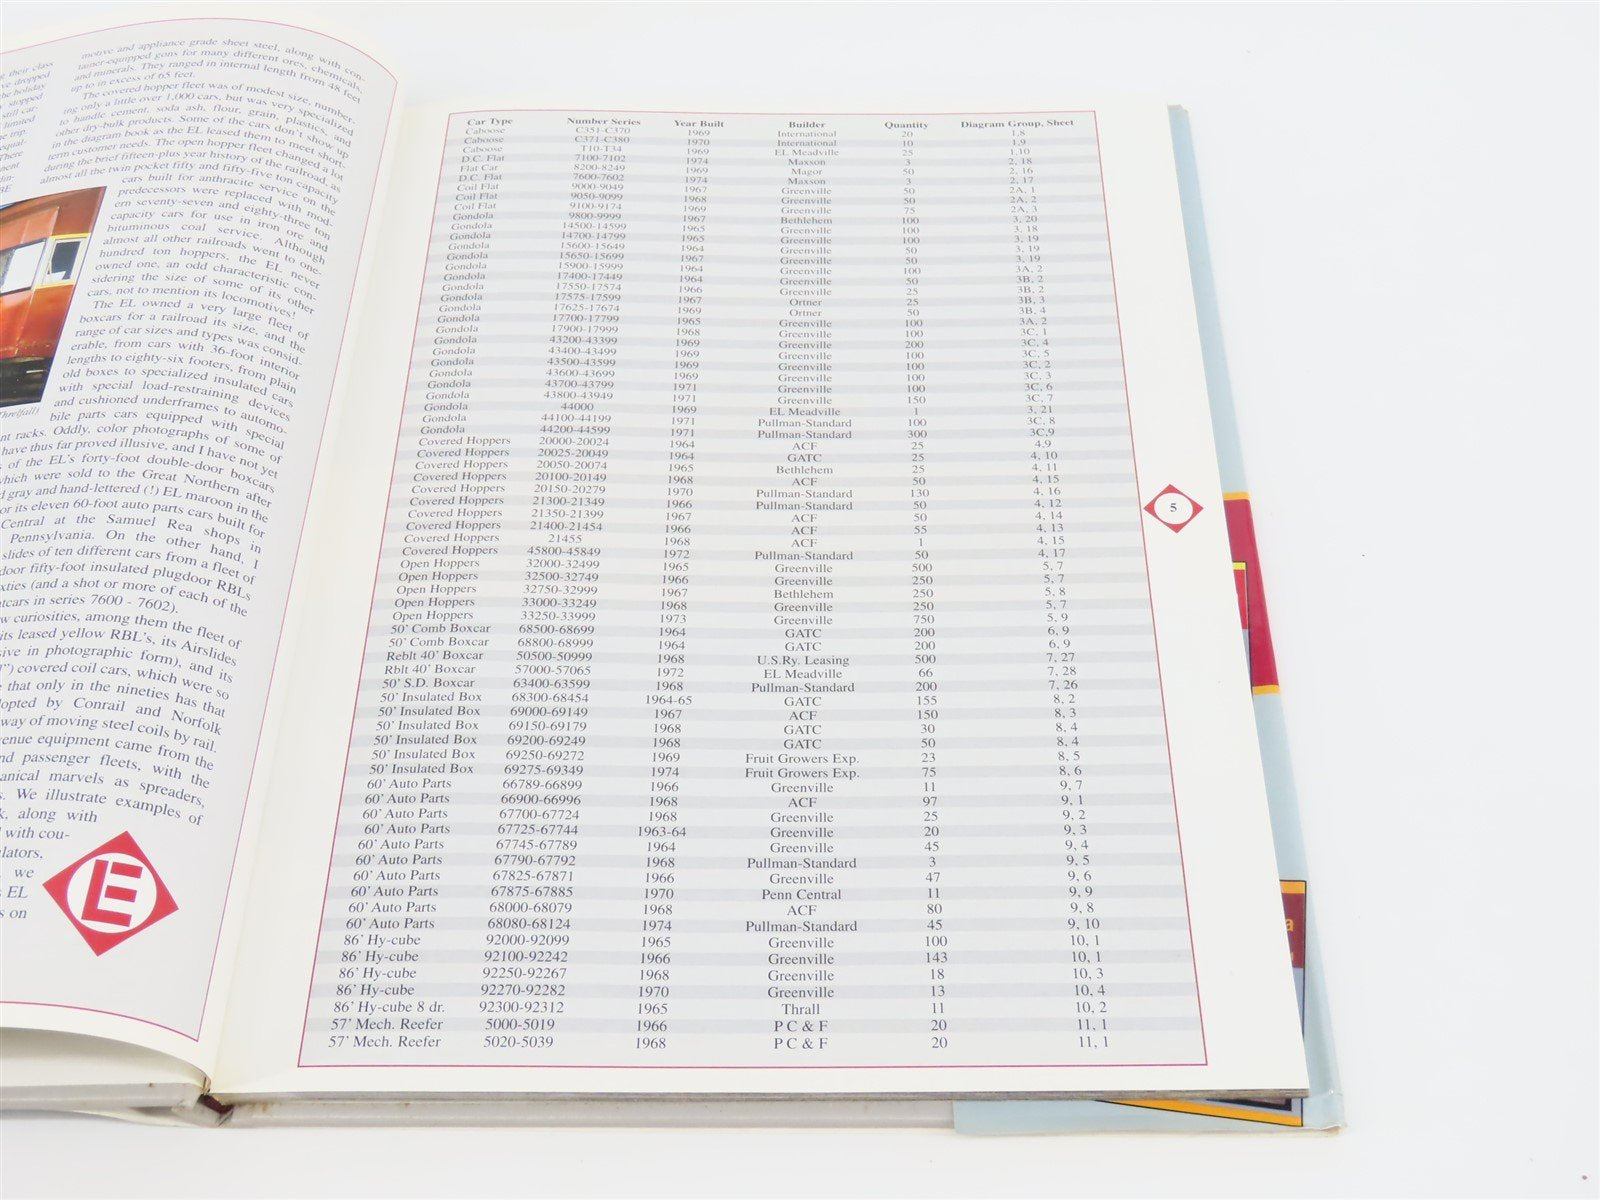 g their class
ve dropped
he holiday
stopped
still car-
limited
e trip.
equal-
There
nent
din-
BE
motive and appliance grade sheet steel, along with con-
tainer-equipped gons for many different ores, chemicals,
and minerals. They ranged in internal length from 48 feet
up to in excess of 65 feet.
The covered hopper fleet was of modest size, number-
ing only a little over 1,000 cars, but was very specialized
to handle cement, soda ash, flour, grain, plastics, and
other dry-bulk products. Some of the cars don't show up
in the diagram book as the EL leased them to meet short-
term customer needs. The open hopper fleet changed a lot
during the brief fifteen-plus year history of the railroad, as
almost all the twin pocket fifty and fifty-five ton capacity
cars built for anthracite service on the
predecessors were replaced with mod-
ern seventy-seven and eighty-three ton
capacity cars for use in iron ore and
bituminous coal service. Although
almost all other railroads went to one-
hundred ton hoppers, the EL never
owned one, an odd characteristic con-
sidering the size of some of its other
cars, not to mention its locomotives!
The EL owned a very large fleet of
boxcars for a railroad its size, and the
range of car sizes and types was consid-
erable, from cars with 36-foot interior
lengths to eighty-six footers, from plain
old boxes to specialized insulated cars
with special load-restraining devices
and cushioned underframes to automo-
bile parts cars equipped with special
Threlfall)
nt racks. Oddly, color photographs of some of
have thus far proved illusive, and I have not yet
s of the EL's forty-foot double-door boxcars
which were sold to the Great Northern after
d gray and hand-lettered (!) EL maroon in the
or its eleven 60-foot auto parts cars built for
Central at the Samuel Rea shops in
Pennsylvania. On the other hand, I
slides of ten different cars from a fleet of
door fifty-foot insulated plugdoor RBLs
xties (and a shot or more of each of the
tcars in series 7600 - 7602).
w curiosities, among them the fleet of
its leased yellow RBL's, its Airslides
sive in photographic form), and its
") covered coil cars, which were so
that only in the nineties has that
dopted by Conrail and Norfolk
way of moving steel coils by rail.
venue equipment came from the
nd passenger fleets, with the
anical marvels as spreaders,
s. We illustrate examples of
k, along with
d with cou-
lators,
, we
s EL
s on
E
Car Type Number Series Year Built Builder Quantity Diagram Group, Sheet
Caboose C351-C370 1969 International 20 1,8
Caboose C371-C380 1970 International 10 1,9
Caboose T10-T34 EL Meadville 25 1,10
D.C. Flat 7100-7102 1974 Maxson 3 2, 18
Flat Car 8200-8249 1969 Magor 50 2, 16
D.C. Flat 7600-7602 1974 Maxson 3 2, 17
Coil Flat 9000-9049 1967 Greenville 50 2A, 1
Coil Flat 9050-9099 1968 Greenville 50 2A, 2
Coil Flat 9100-9174 1969 Greenville 75 2A, 3
Gondola 9800-9999 1967 Bethlehem 100 3, 20
Gondola 14500-14599 1965 Greenville 100 3, 18
Gondola 14700-14799 1965 Greenville 100 3, 19
Gondola 15600-15649 1964 Greenville 50 3, 19
Gondola 15650-15699 1967 Greenville 50 3, 19
Gondola 15900-15999 1964 Greenville 100 3A, 2
Gondola 17400-17449 1964 Greenville 50 3B, 2
Gondola 17550-17574 1966 Greenville 25 3B, 2
Gondola 17575-17599 1967 Ortner 25 3B, 3
Gondola 17625-17674 1969 Ortner 50 3B, 4
Gondola 17700-17799 1965 Greenville 100 3A, 2
Gondola 17900-17999 1968 Greenville 100 3C, 1
Gondola 43200-43399 1969 Greenville 200 3C, 4
Gondola 43400-43499 1969 Greenville 100 3C, 5
Gondola 43500-43599 1969 Greenville 100 3C, 2
Gondola 43600-43699 1969 Greenville 100 3C, 3
Gondola 43700-43799 1971 Greenville 100 3C, 6
Gondola 43800-43949 1971 Greenville 150 3C, 7
Gondola 44000 1969 EL Meadville 1 3, 21
Gondola 44100-44199 1971 Pullman-Standard 100 3C, 8
Gondola 44200-44599 1971 Pullman-Standard 300 3C,9
Covered Hoppers 20000-20024 1964 ACF 25 4,9
Covered Hoppers 20025-20049 1964 GATC 25 4, 10
Covered Hoppers 20050-20074 1965 Bethlehem 25 4, 11
Covered Hoppers 20100-20149 1968 ACF 50 4, 15
Covered Hoppers 20150-20279 1970 Pullman-Standard 130 4, 16
Covered Hoppers 21300-21349 1966 Pullman-Standard 50 4, 12
Covered Hoppers 21350-21399 1967 ACF 50 4, 14
Covered Hoppers 21400-21454 1966 ACF 55 4, 13
Covered Hoppers 21455 1968 ACF 1 4, 15
Covered Hoppers 45800-45849 1972 Pullman-Standard 50 4, 17
Open Hoppers 32000-32499 1965 Greenville 500 5, 7
Open Hoppers 32500-32749 1966 Greenville 250 5, 7
Open Hoppers 32750-32999 1967 Bethlehem 250 5, 8
Open Hoppers 33000-33249 1968 Greenville 250 5, 7
Open Hoppers 33250-33999 1973 Greenville 750 5, 9
50' Comb Boxcar 68500-68699 1964 GATC 200 6, 9
50' Comb Boxcar 68800-68999 1964 GATC 200 6, 9
Reblt 40' Boxcar 50500-50999 1968 U.S.Ry. Leasing 500 7, 27
Rblt 40' Boxcar 57000-57065 1972 EL Meadville 66 7, 28
50' S.D. Boxcar 63400-63599 1968 Pullman-Standard 200 7, 26
50' Insulated Box 68300-68454 1964-65 GATC 155 8, 2
50' Insulated Box 69000-69149 1967 ACF 150 8, 3
50' Insulated Box 69150-69179 1968 GATC 30 8, 4
50' Insulated Box 69200-69249 1968 GATC 50 8, 4
50' Insulated Box 69250-69272 1969 Fruit Growers Exp. 23 8, 5
50' Insulated Box 69275-69349 1974 Fruit Growers Exp. 75 8, 6
60' Auto Parts 66789-66899 1966 Greenville 11 9, 7
60' Auto Parts 66900-66996 1968 ACF 97 9, 1
60' Auto Parts 67700-67724 1968 Greenville 25 9, 2
60' Auto Parts 67725-67744 1963-64 Greenville 20 9, 3
60' Auto Parts 67745-67789 1964 Greenville 45 9, 4
60' Auto Parts 67790-67792 1968 Pullman-Standard 3 9, 5
60' Auto Parts 67825-67871 1966 Greenville 47 9, 6
60' Auto Parts 67875-67885 1970 Penn Central 11 9, 9
60' Auto Parts 68000-68079 1968 ACF 80 9, 8
60' Auto Parts 68080-68124 1974 Pullman-Standard 45 9, 10
86' Hy-cube 92000-92099 1965 Greenville 100 10, 1
86' Hy-cube 92100-92242 1966 Greenville 143 10, 1
86' Hy-cube 92250-92267 1968 Greenville 18 10, 3
86' Hy-cube 92270-92282 1970 Greenville 13 10, 4
86' Hy-cube 8 dr. 92300-92312 1965 Thrall 11 10, 2
57' Mech. Reefer 5000-5019 1966 P C & F 20 11, 1
57' Mech. Reefer 5020-5039 1968 P C & F 20 11, 1
5
a